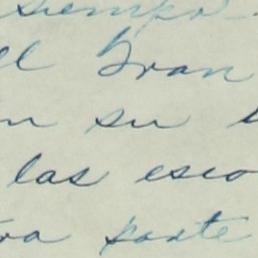 siempre
el Gran
en su
las esco
ra parte